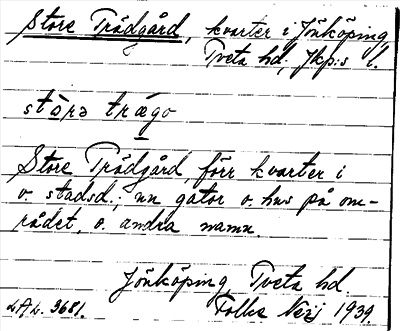 Store Trädgård, kvarter i Jönköping
Tveta hd, Jkp:s l.
stòrə trǽgo
Store Trädgård, förr kvarter i
ö. stadsd.; nu gator o. hus på om-
rådet, o. andra namn.
Jönköping, Tveta hd
LAL. 3681. Folke 1939.